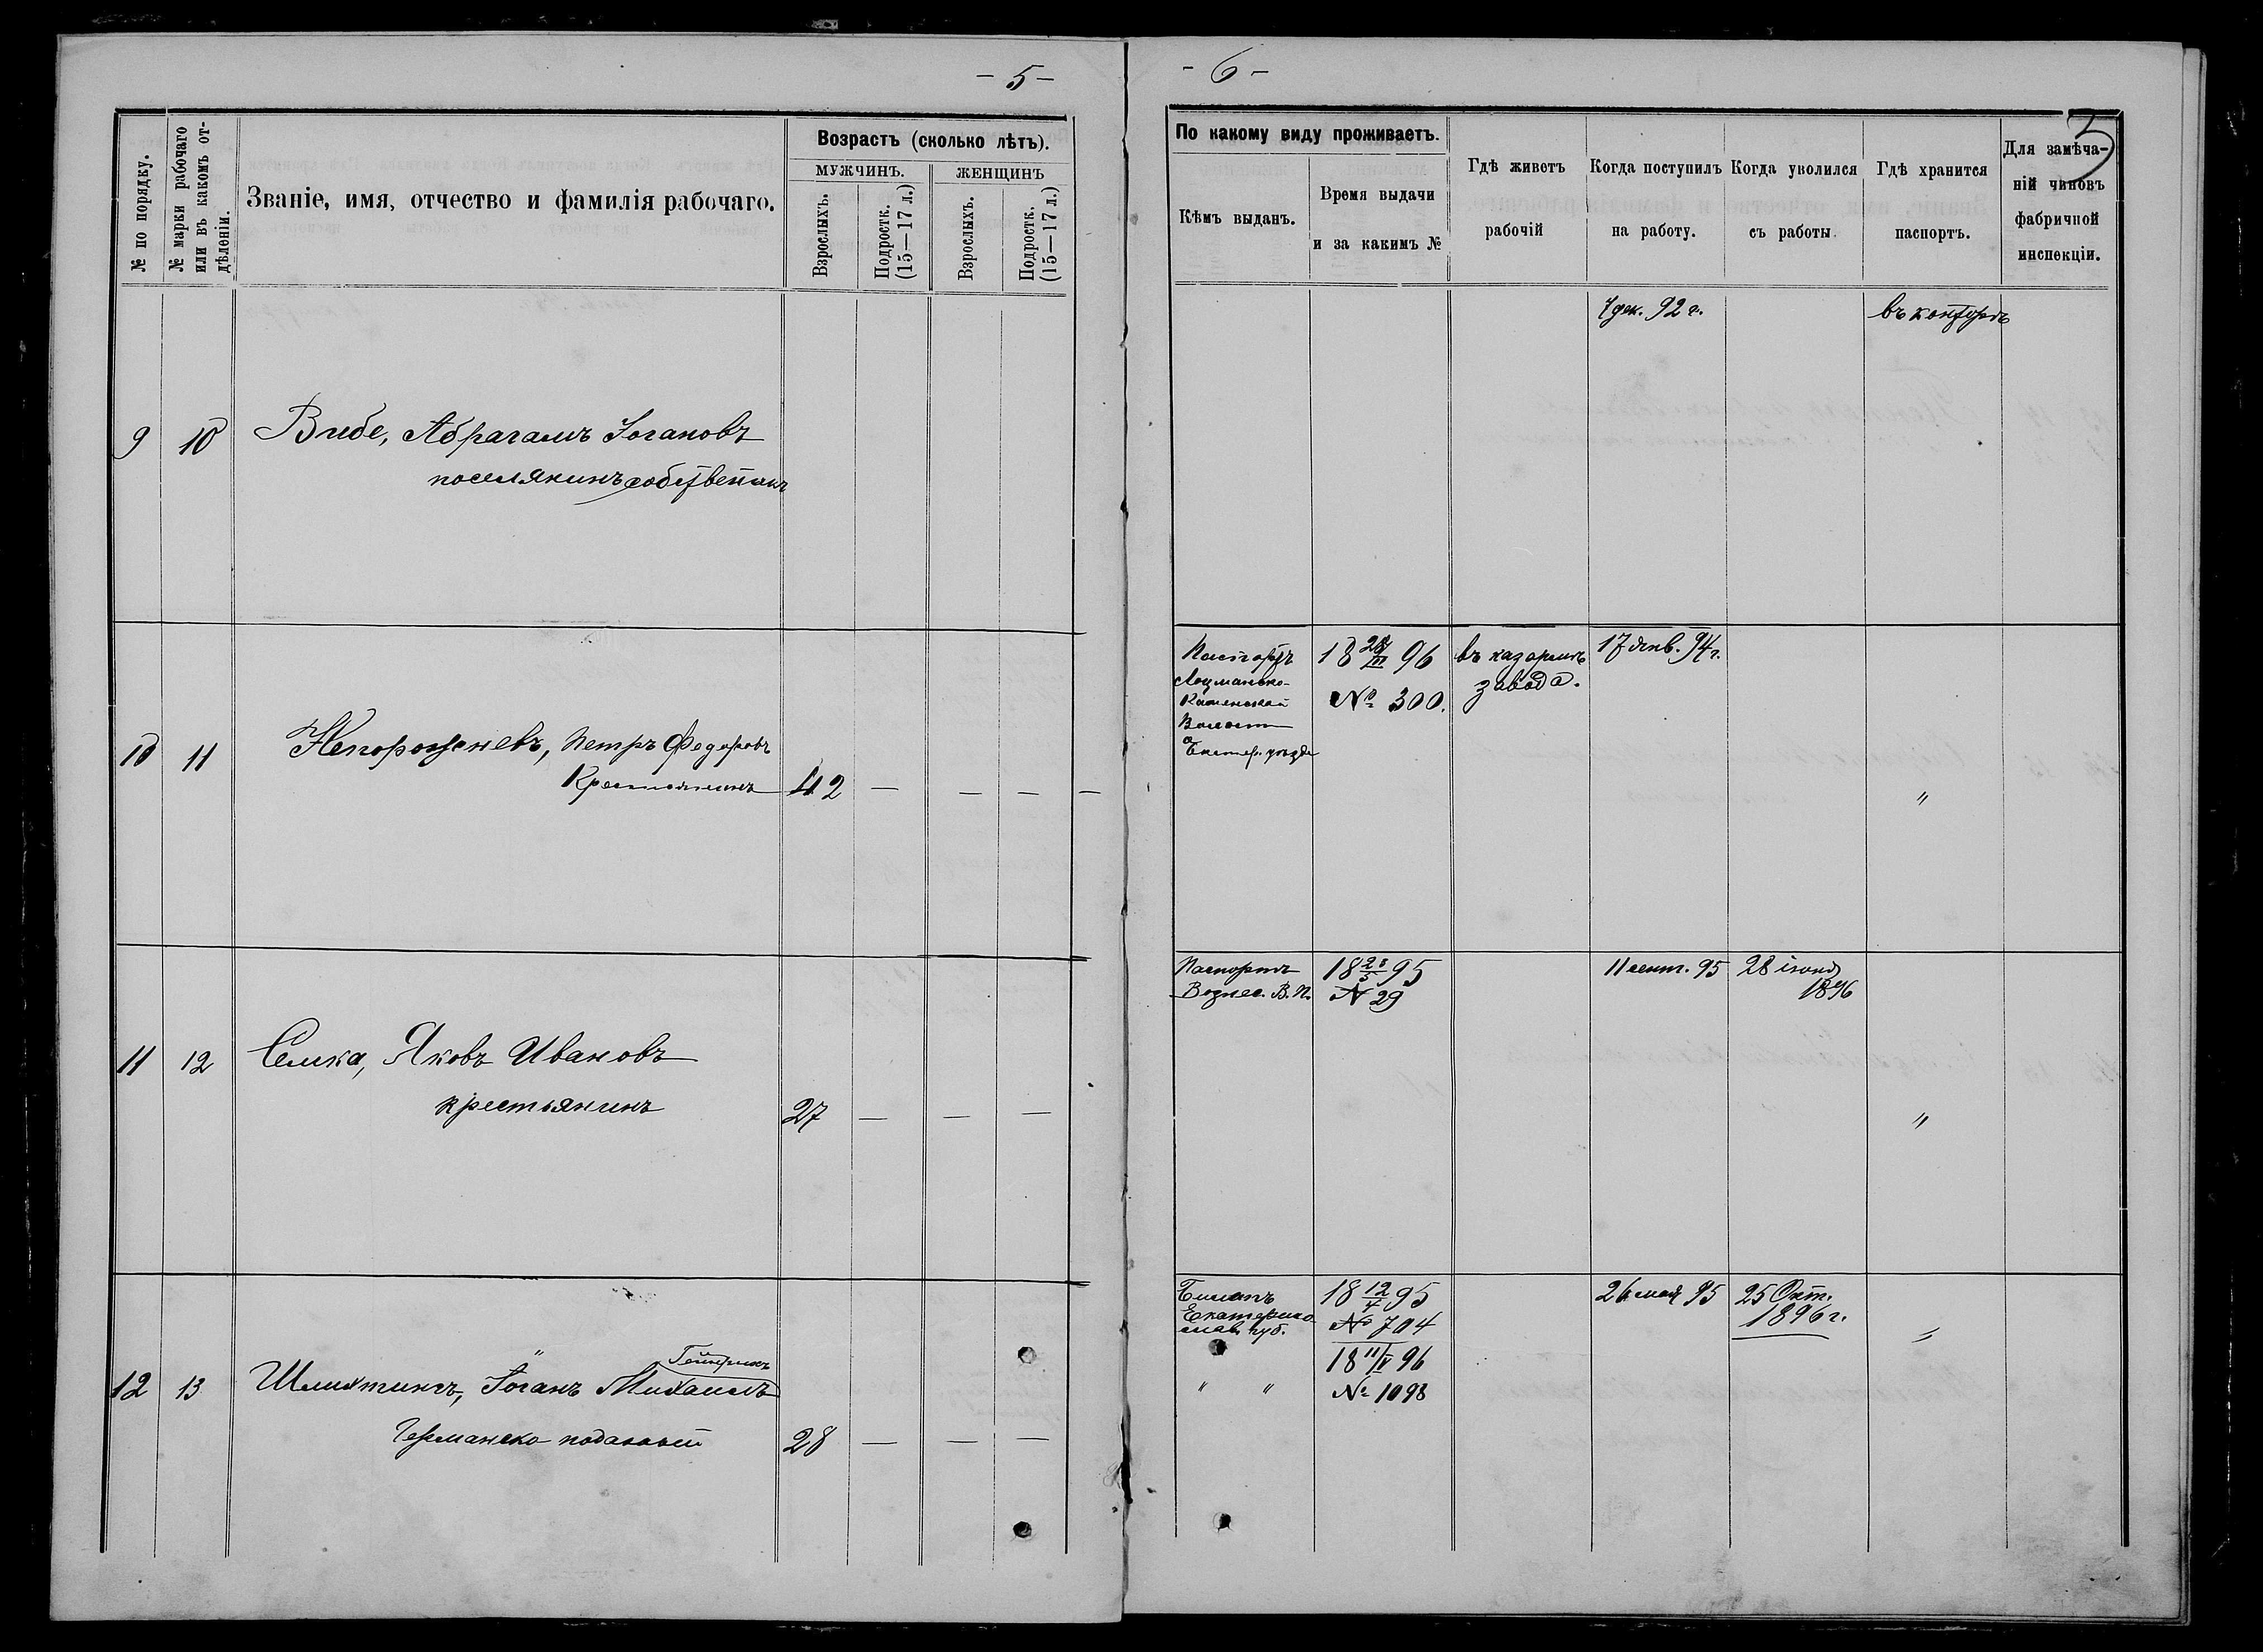 - 5 -
№ по порядку.
№ марки рабочаго или въ какомъ от-дѣленіи.
Званіе, имя, отчество и фамилія рабочаго.
Возрастъ (сколько лѣтъ).
МУЖЧИНЪ.
ЖЕНЩИНЪ
Взрослыхъ.
Подростк. (15—17 л.)
Взрослыхъ.
Подростк. (15—17 л.)
9 10 Вибе, Абрагамъ Іогановъ
поселянинъ собственникъ
10 11 Непорожневъ, Петръ Федоровъ
Крестьянинъ 42 — — — —
11 12 Семка, Яковъ Ивановъ
крестьянинъ 27 — — —
Гейнрихъ
12 13 Іоганъ Михаилъ
Германско поданый 28 — — —
- 6 -
3
По какому виду проживаетъ.
Кѣмъ выданъ.
Время выдачи
и за какимъ №
Гдѣ живетъ
рабочій
Когда поступилъ
на работу.
Когда уволился
съ работы
Гдѣ хранится
паспортъ.
Для замѣча-
ній чиновъ
фабричной
инспекціи.
7 дек. 92 г. въ конторѣ
Паспортъ 18 28/III 96 въ казармѣ 17 янв. 94 г.
Лоцманско- завода.
Каменской № 300.
Волости
Екатер. уѣзда
"
Паспортъ 18 28/5 95 11 сент. 95 28 іюня
Вознес. В. П. № 29 1896
"
Билетъ 18 12/4 95 26 мая 95 25 Окт.
Екатерино № 704 1896 г.
слав. губ. "
18 11/V 96
" " № 1098